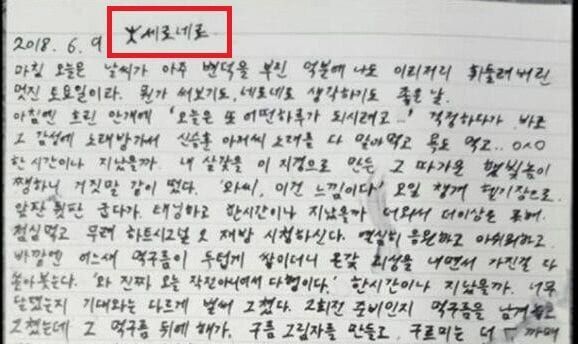 2018. 6. 9 ★세로네로
마침 오늘은 날씨가 아주 변덕을 부린 덕분에 나도 이리저리 휘둘려버린
멋진 토요일이라. 뭔가 써보기도, 네로네로 생각하기도 좋은 날.
아침엔 흐린 안개에 '오늘은 또 어떤하루가 되시려고...' 걱정하다가 바로
그 감성에 노래방가서 신승훈 아저씨 노래를 다 잊어먹고 욕도 먹고.. 0ㅅ0
한 시간이나 지났을까. 내 살갗을 이 지경으로 만든 그 따가운 햇빛놈이
쨍하니 거짓말 같이 떴다. '와씨, 이건 느낌이다' 오일 챙겨 헬기장으로.
앞판 뒷판 굽다가. 태닝하고 한시간이나 지났을까 더워서 더이상은 못해.
점심먹고 무려 하트시그널 2 재방 시청하신다. 열심히 응원하고 아쉬워하고.
바깥엔 어느새 먹구름이 두텁게 쌓이더니 온갖 괴성을 내면서 가진걸 다
쏟아붓는다. '와 진짜 오늘 작전아니여서 다행이다.' 한시간이나 지났을까. 너무
달렸는지 기대와는 다르게 벌써 그쳤다. 2회전 준비인지 먹구름을 남겨놓고
그쳤는데 그 먹구름 뒤에 해가. 구름 그림자를 만들고, 구르미는 더